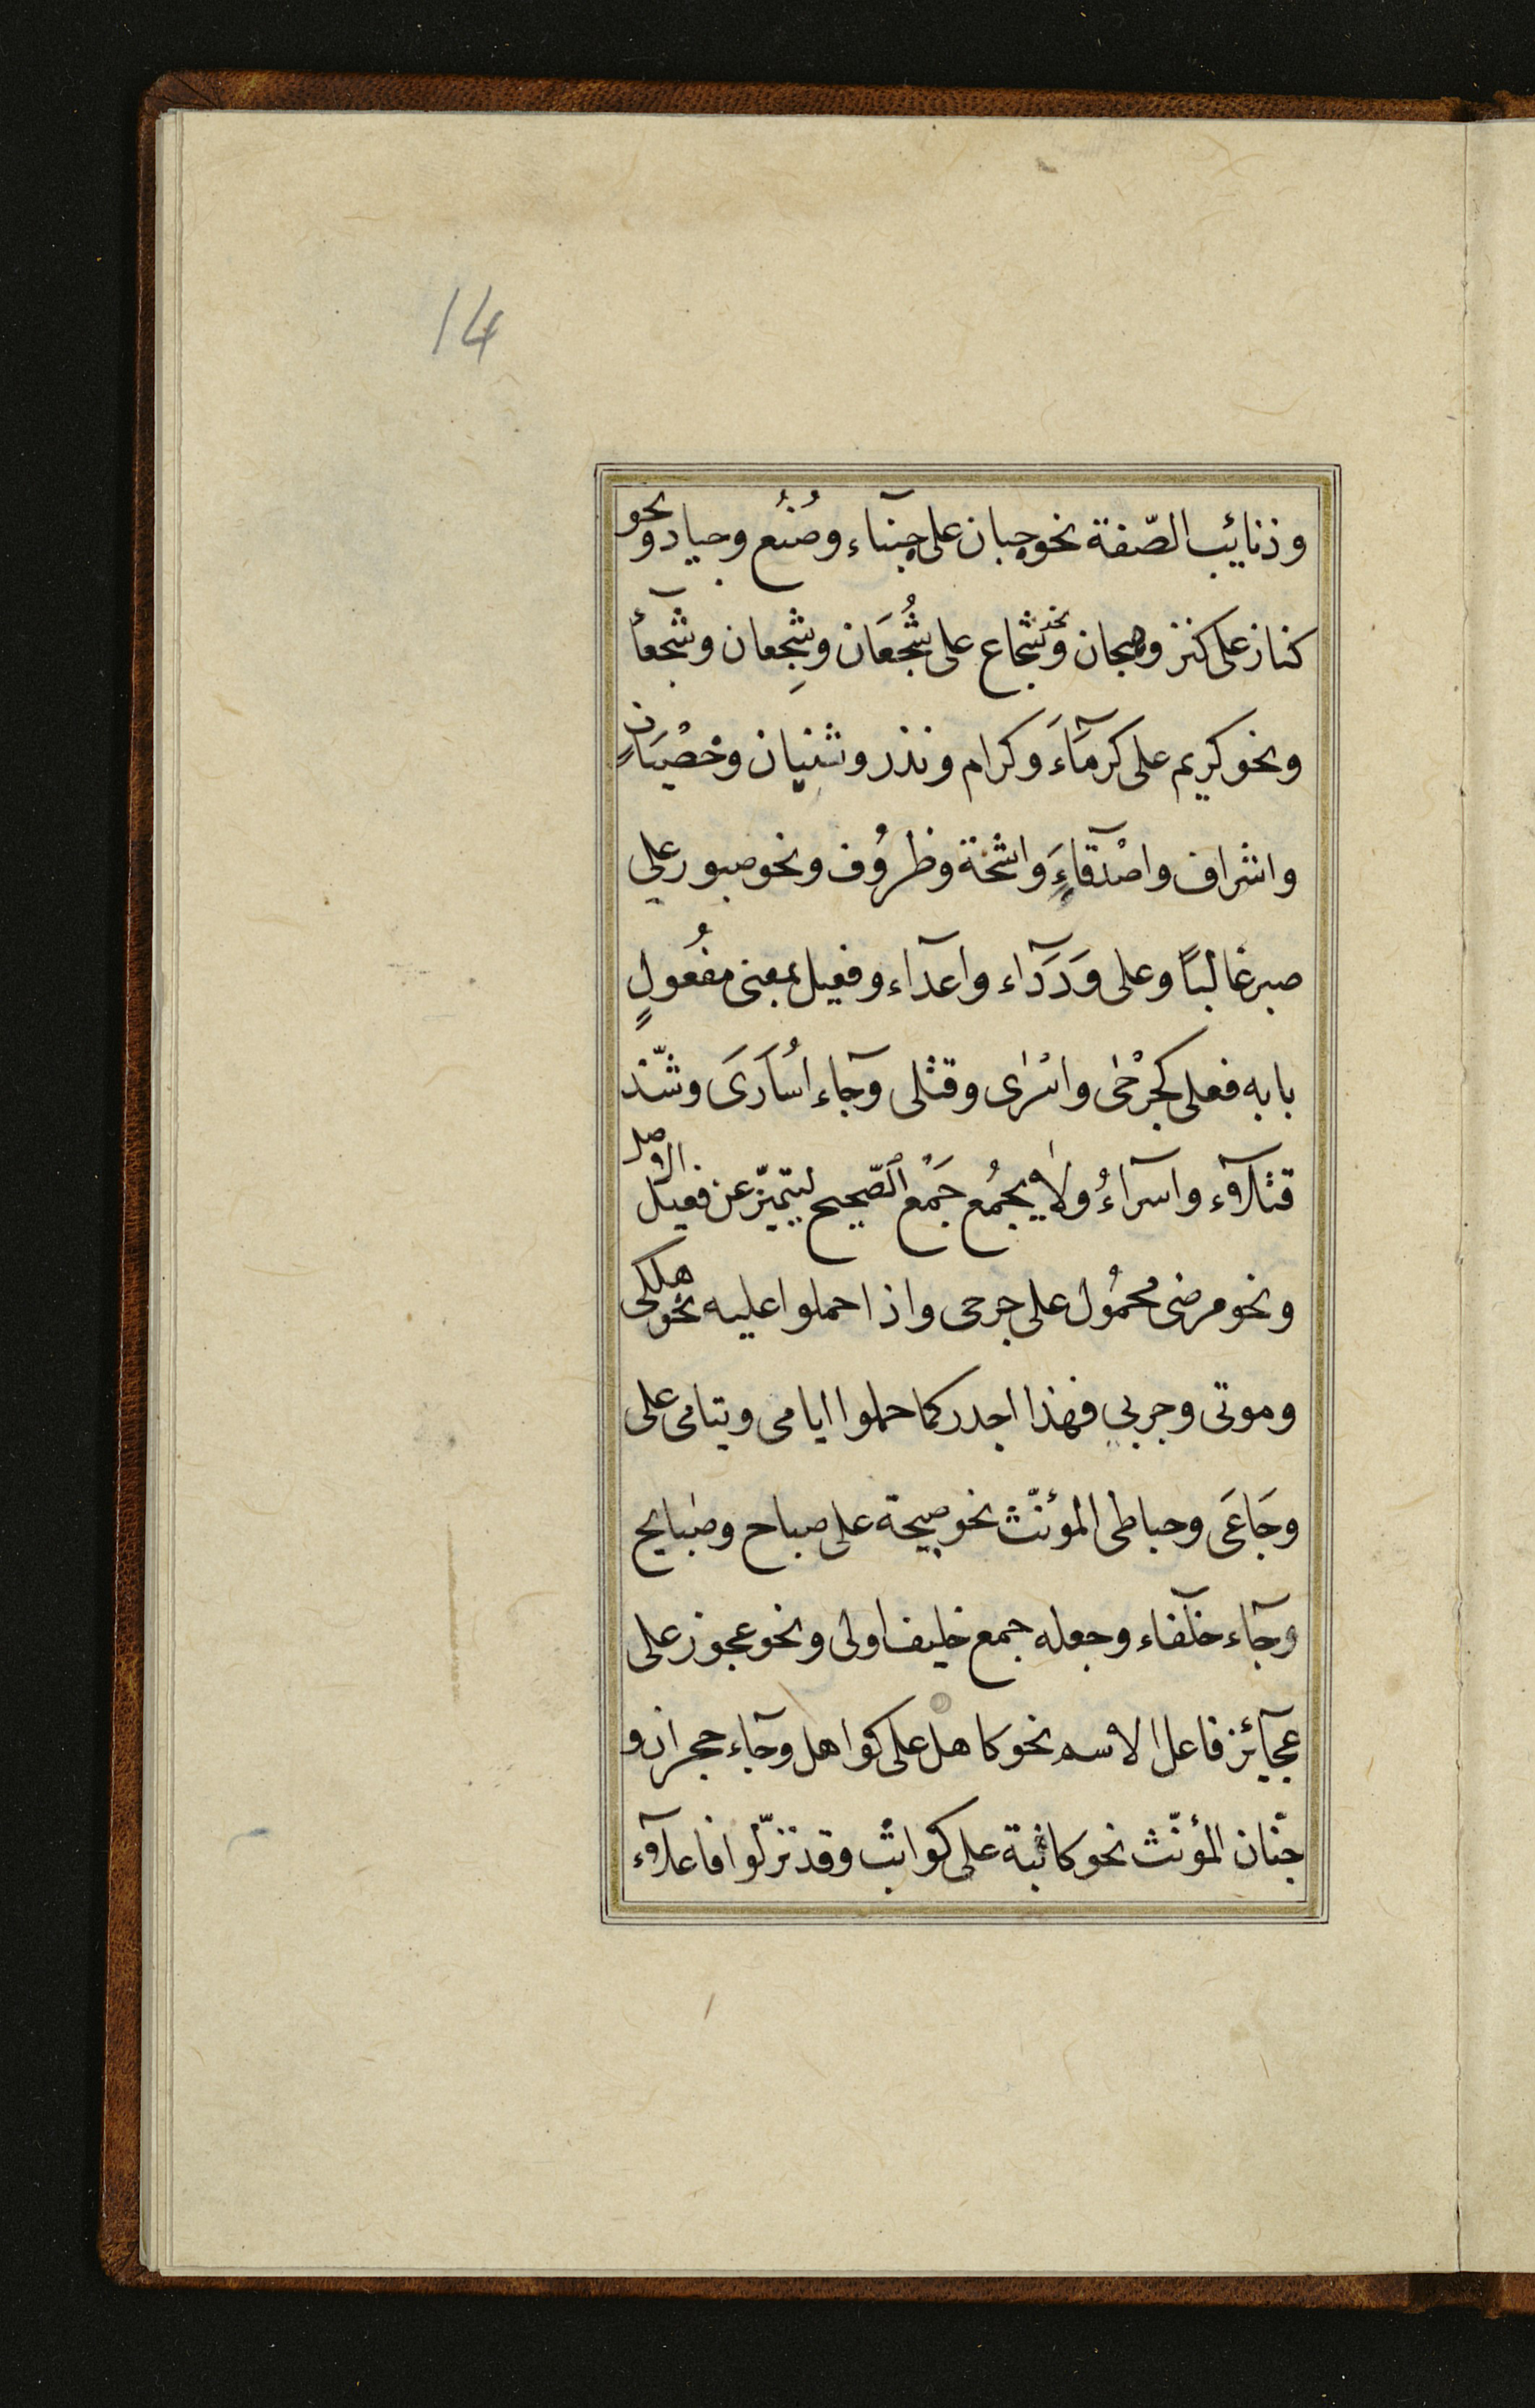 14
وذنايب الصّفة نحو جبان على جبنآء وصُنُع وجياد ونحو
كناز على كنز وهجان ونحو شجاع على شُجعَان وشِجعان وشجعآء
ونحو كريم على كرمَآءَ وكرام ونذر وثنيان وخصْيَانٍ
واشراف واصْدقآءَ واشحّة وظرُوف ونحو صبور على
صبر غالبًا وعلى وَدَدَآء واعدآء وفعيل بمعنى مفعُولٍ
بابه فعلى كجرْحٰى واسْرٰى وقتْلى وجآء اُسَارَى وشّذ
قتلآء واسرآءُ ولا يجمُع جَمْع الصّحيح ليتميّز عن فعيل الاصل
ونحو مرضى محمُول على جرحى واذا حملوا عليه نحو هلكى
وموتى وجربى فهذا اجدر كما حملوا ايامى ويتامى على
وجَاعَى وحباطى المؤنّث نحو صبيحة على صباح وصبايح
وجآء خلفآء وجعله جمع خليف اولى ونحو عجوز على
عجآئز فاعل الاسم نحو كاهل على كواهل وجآء حجران و
جنّان المؤنّث نحو كاثبة على كواثب وقد نزّلوا فاعلآء